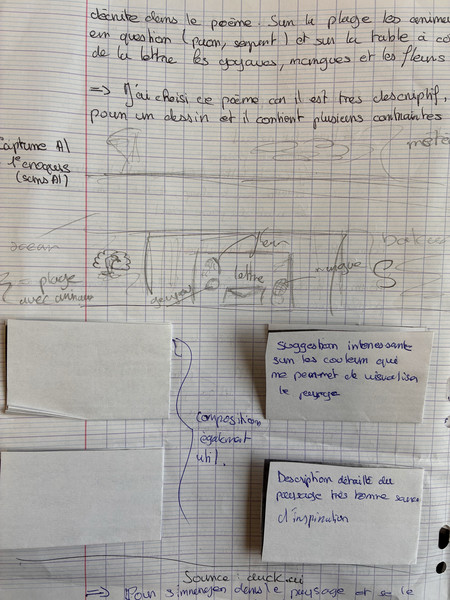 décrite dans le poème. Sur la plage les anima
en question (paon, serpent) et sur la table à cô
de la lettre les goyaves, mangues et les fleurs
=> J'ai choisi ce poème car il est très descriptif,
pour un dessin et il contient plusieurs contraintes
Capture AI
1er croquis
(sans AI)
océan
= plage
avec anima
goyave
fleur
lettre
mangue
suggestion interessante
sur les couleur qui
me permet de visualiser
le paysage
composition
également
util.
Description détaillé du
paysage très bonne source
d'inspiration
Source : duck.ai
=> Pour s'immerger dans le paysage et se le